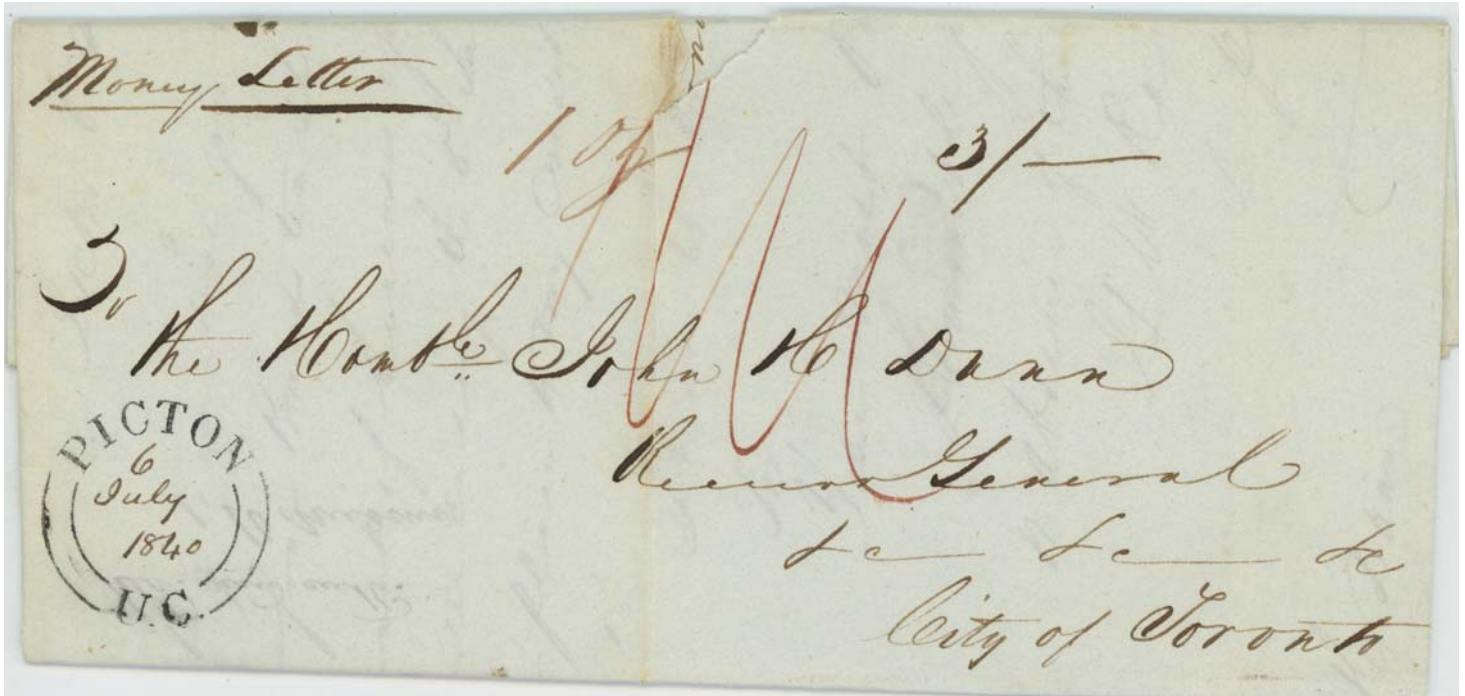 Money Letter
1 oz
3/—
To
The Honble John H Dunn
Receiver General
&c &c &c
City of Toronto
PICTON
6
July
1840
U.C.